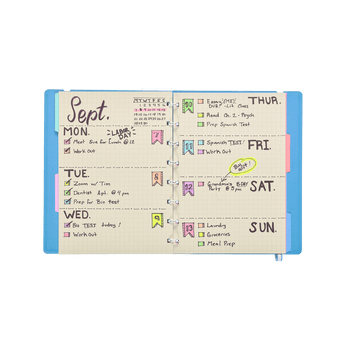 Sept.
M T W T F S S
MON.
LABOR
DAY
7
Meet Sue for Lunch @ 12
Work Out
TUE.
8
Zoom w/ Tim
Dentist Apt. @ 4 pm
Prep for Bio test
WED.
9
Bio TEST today!
Work Out
THUR.
10
Essay
DUE! - Lit Class
Read Ch. 2 - Psych
Prep Spanish Test
FRI.
11
Spanish TEST!
Work Out
SAT.
12
Grandma's BDAY
Party @ 5 pm
SUN.
13
Laundry
Groceries
Meal Prep